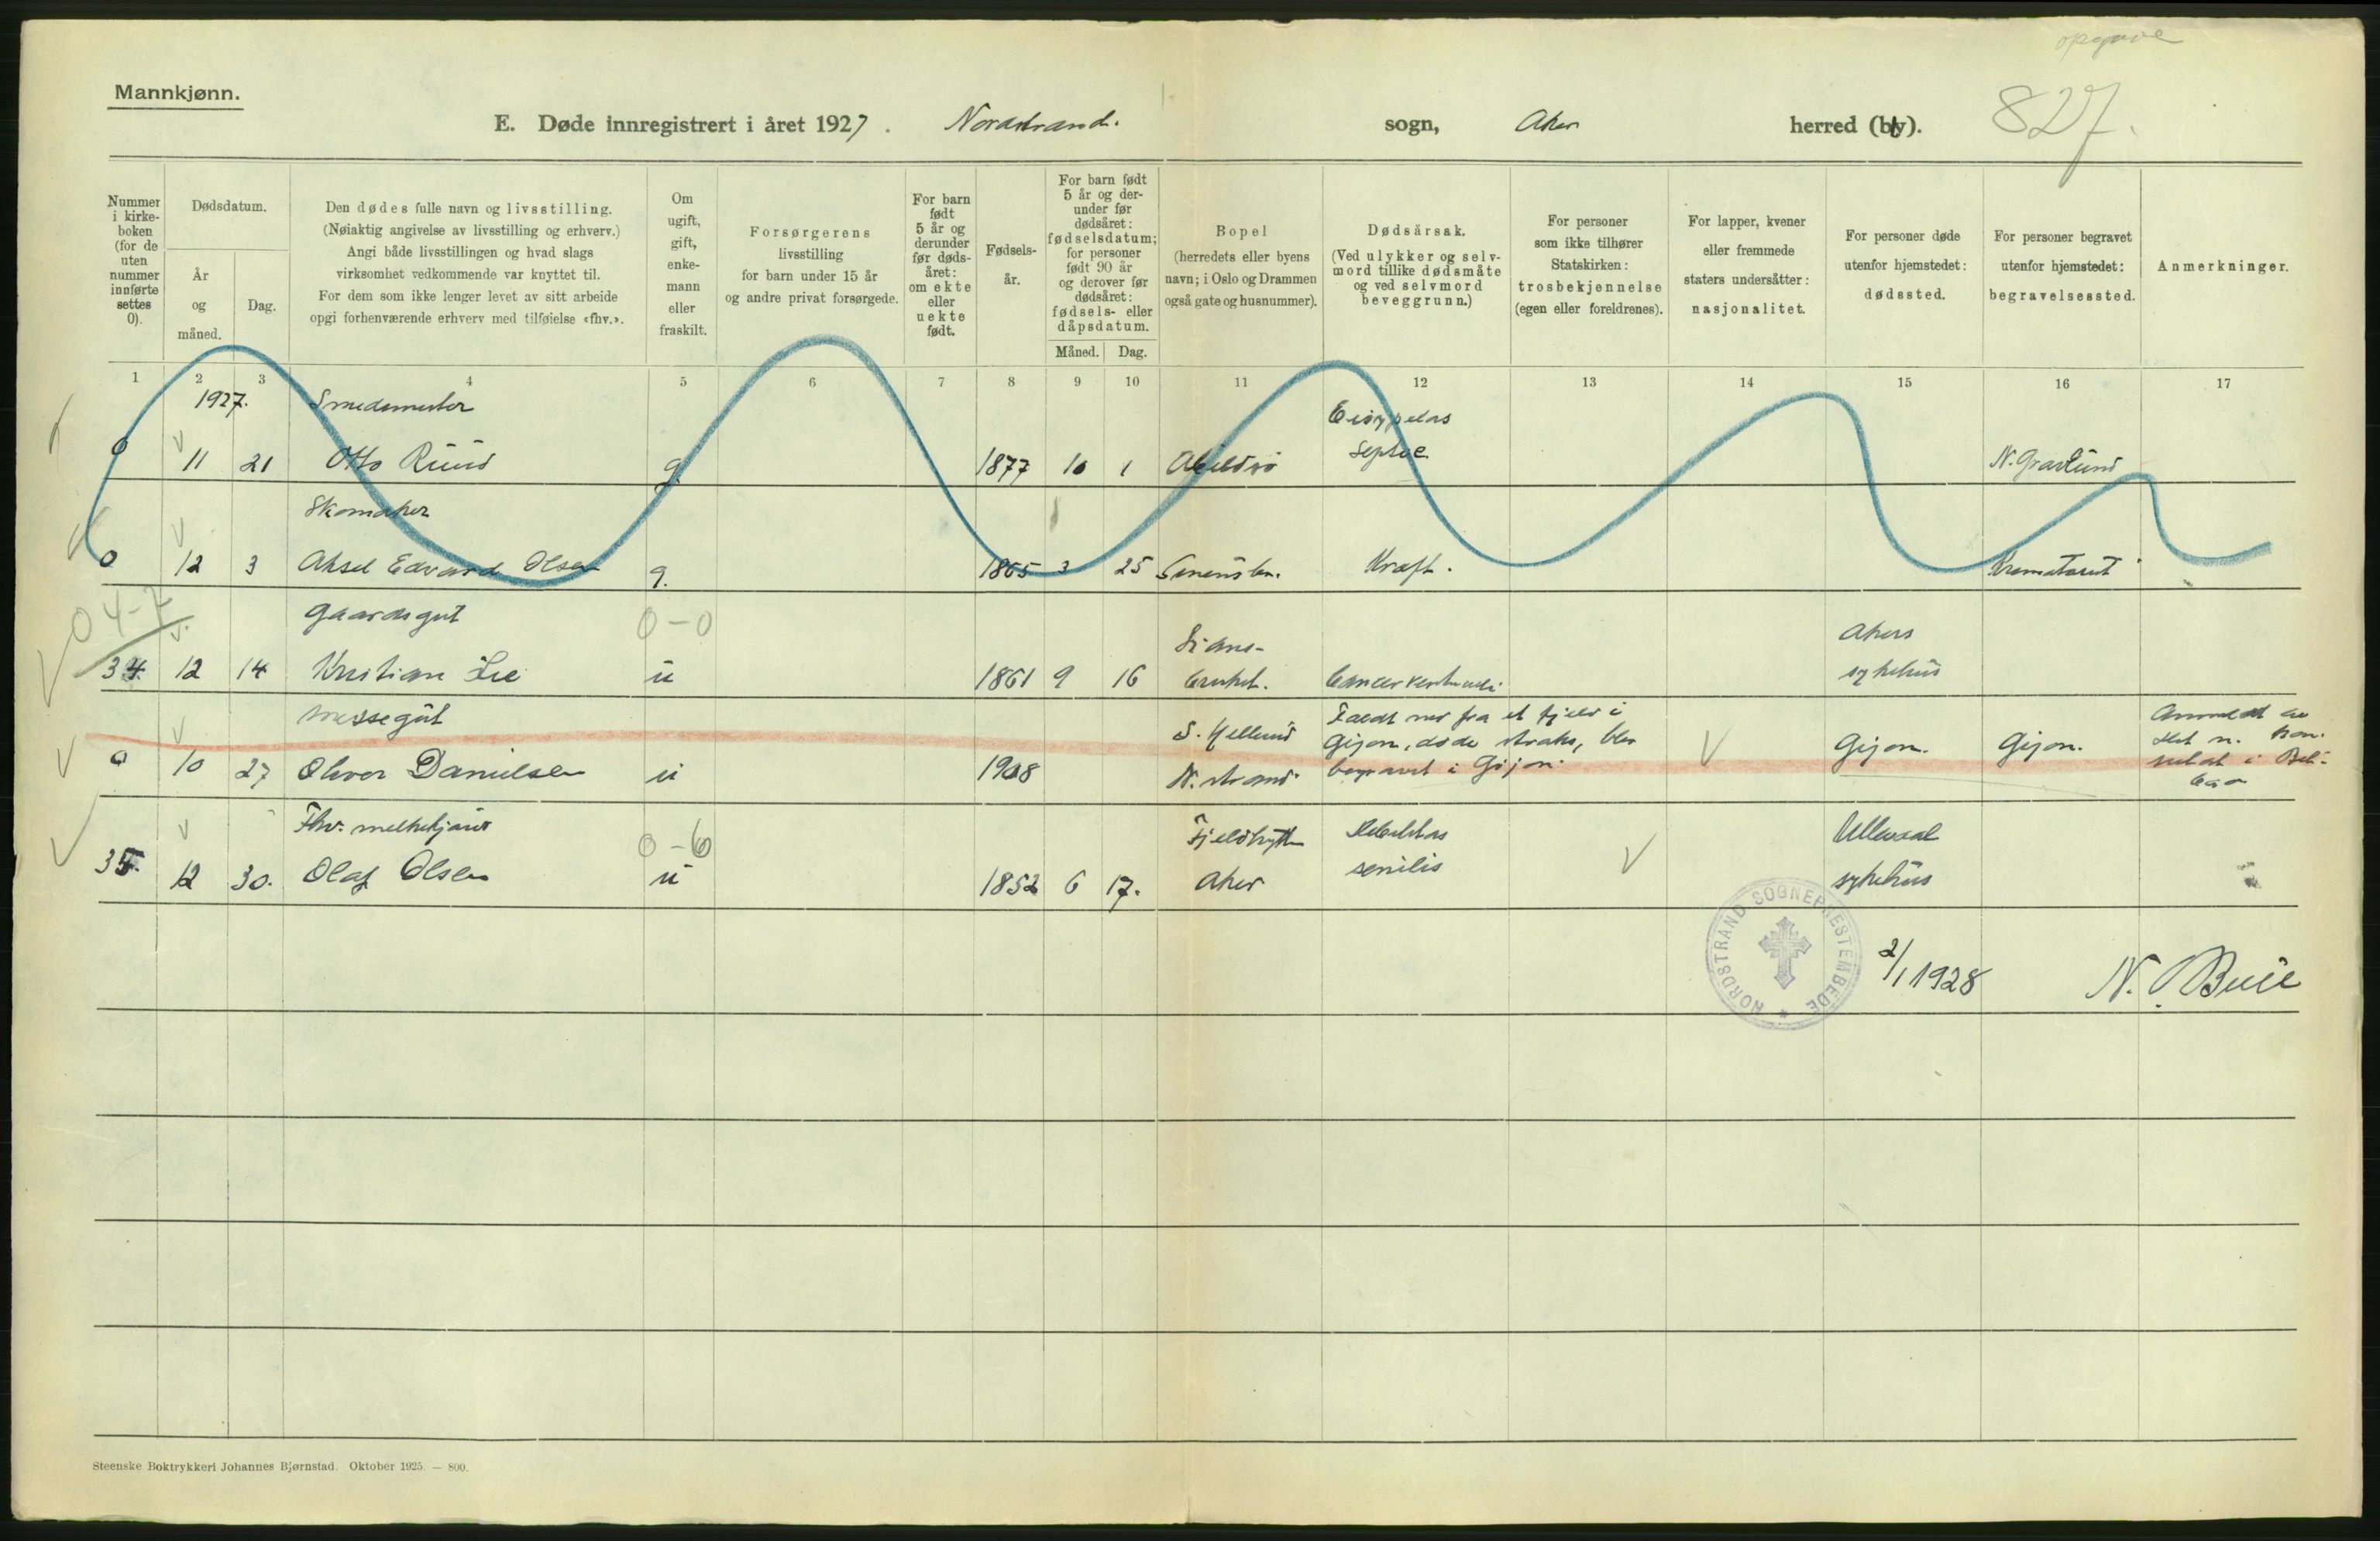 opgave
Mannkjønn.
E. Døde innregistrert i året 1927. Nordstrand. sogn, Aker herred (by). 827.
Nummer i kirkeboken (for de uten nummer innførte settes 0).
Dødsdatum.
År og måned.
Dag.
Den dødes fulle navn og livsstilling.
(Nøiaktig angivelse av livsstilling og erhverv.)
Angi både livsstillingen og hvad slags
virksomhet vedkommende var knyttet til.
For dem som ikke lenger levet av sitt arbeide
opgi forhenværende erhverv med tilføielse «fhv.».
Om ugift, gift, enkemann eller fraskilt.
Forsørgerens
livsstilling
for barn under 15 år
og andre privat forsørgede.
For barn født 5 år og derunder før dødsåret: om ekte eller uekte født.
Fødselsår.
For barn født 5 år og derunder før dødsåret: fødselsdatum; for personer født 90 år og derover før dødsåret: fødsels- eller dåpsdatum.
Måned. Dag.
Bopel
(herredets eller byens
navn; i Oslo og Drammen
også gate og husnummer).
Dødsårsak.
(Ved ulykker og selvmord tillike dødsmåte
og ved selvmord
beveggrunn.)
For personer
som ikke tilhører
Statskirken:
trosbekjennelse
(egen eller foreldrenes).
For lapper, kvener
eller fremmede
staters undersåtter:
nasjonalitet.
For personer døde
utenfor hjemstedet:
dødssted.
For personer begravet
utenfor hjemstedet:
begravelsessted.
Anmerkninger.
1 2 3 4 5 6 7 8 9 10 11 12 13 14 15 16 17
1927. Smedemester
0 11 21 Otto Ruud g. 1877 10 1 Abildsø Septic N. Gravlund
Skomaker
0 12 3 Aksel Edvard Olsen g. 1865 3 25 Kræft. Krematoriet
04-2
Gaardsgut 0-0 Akers
34. 12 14 Kristian Lie u 1861 9 16 bruket. Cancer ventriculi sykehus
Messegut Faldt ned fra et fjeld i Anmeldt av
S. Hellund Gijon, døde straks, blev det n. kon-
0 10 27 Oliver Danielsen u 1908 N. strand. begravet i Gijon. Gijon. Gijon. sulat i Bil-
bao
Fhv. melkekjører 0-6 Fjeldhytten Debilitas Ullevaal
35. 12 30. Olaf Olsen u 1852 6 17. Aker senilis sykehus
NORDSTRAND SOGNEPRESTEMBEDE
2/1 1928 N. Buie
Steenske Boktrykkeri Johannes Bjørnstad. Oktober 1925. — 800.